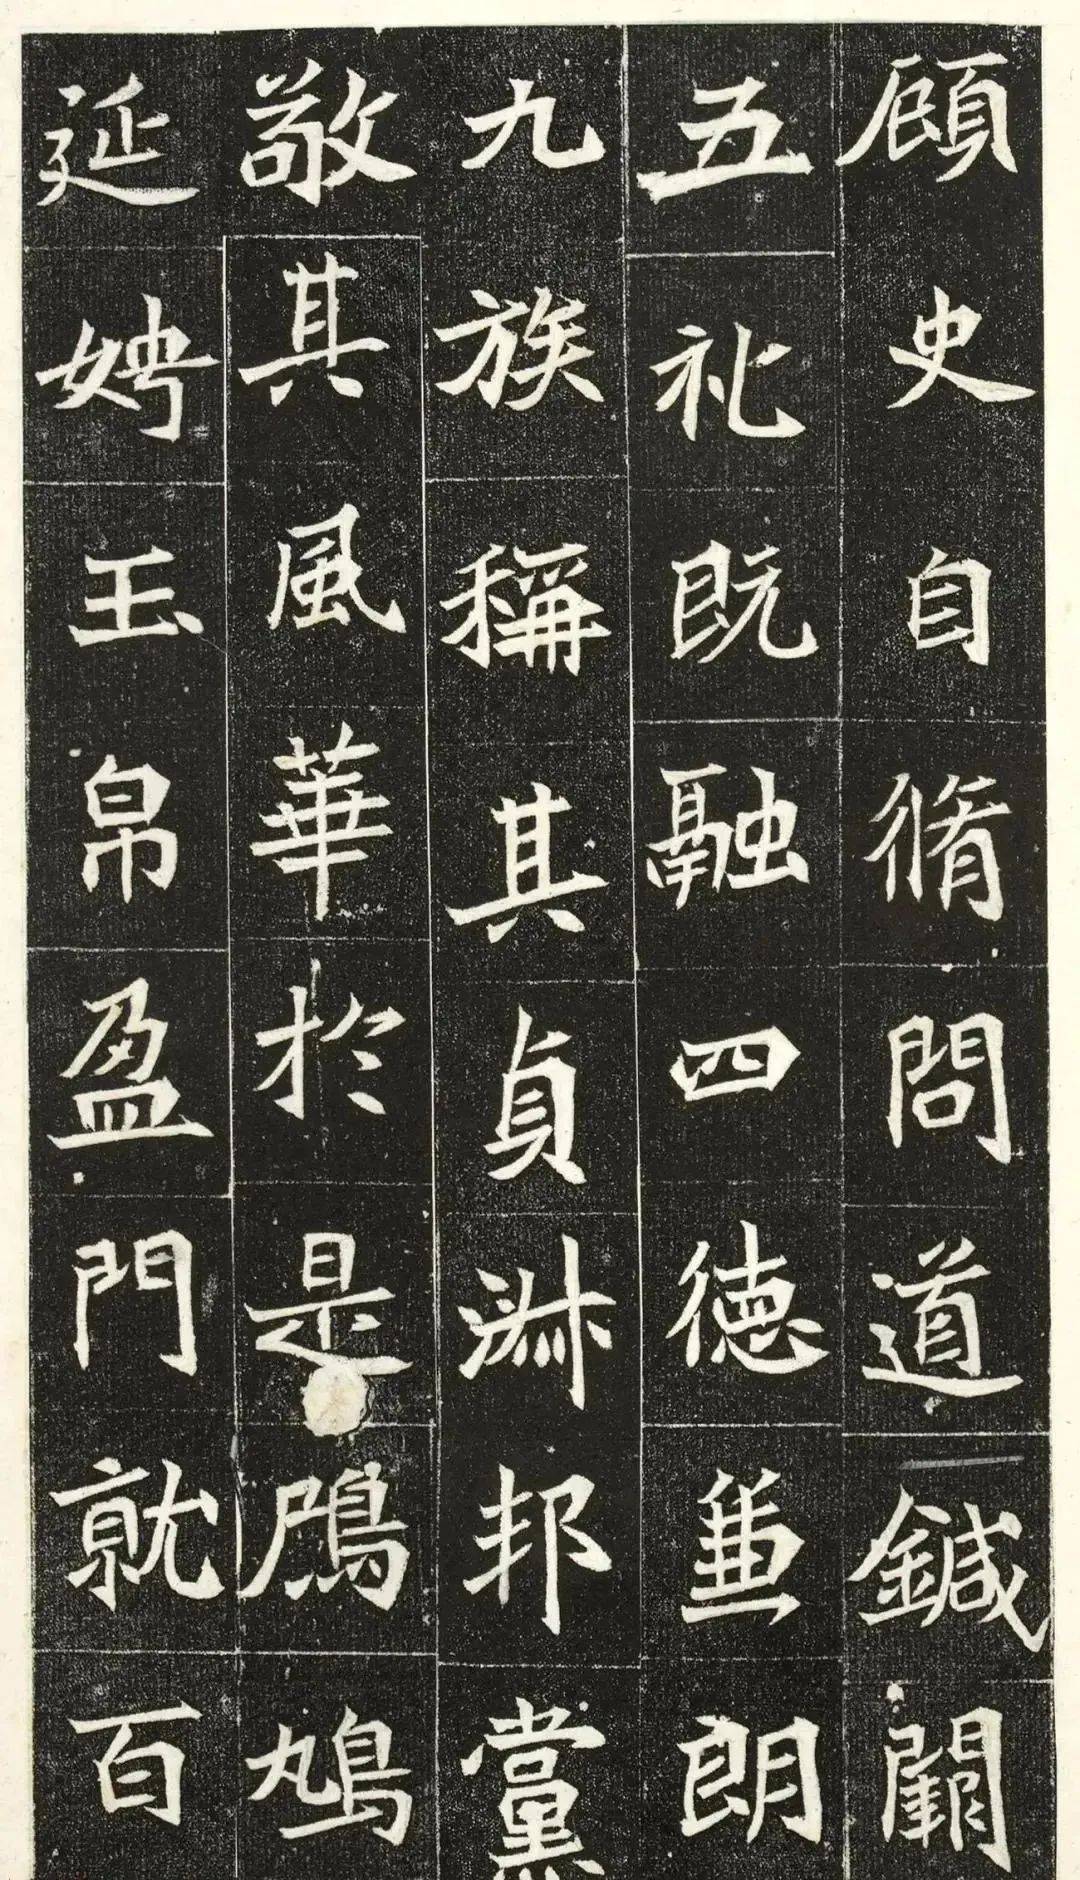 顧史自脩問道鍼闕
五礼既融四德兼朗
九族稱其貞淑邦黨
敬其風華於是鴈鳩
延娉玉帛盈門就百